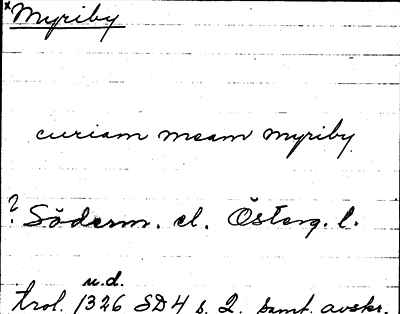 x Myriby
curiam meam myriby
? Söderm. el. Österg. l.
u.d.
trol. 1326 SD4 s. 2. samt. avskr.